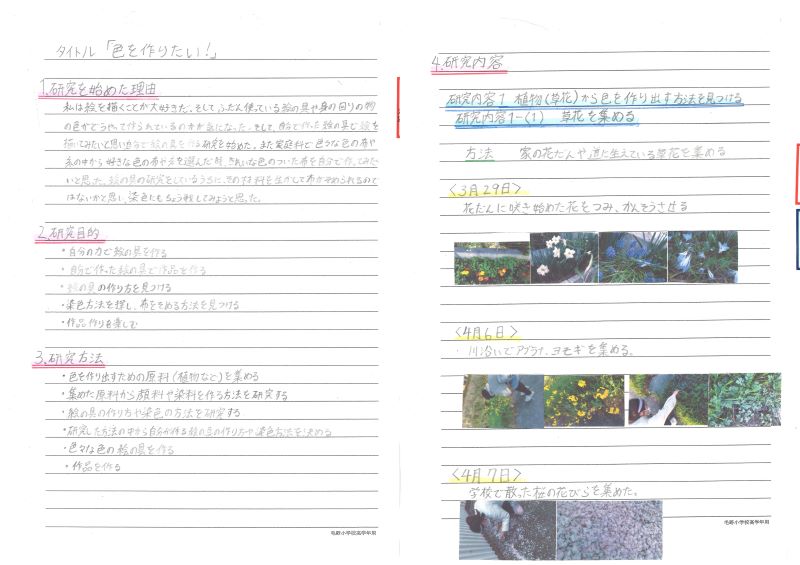 タイトル「色を作りたい!」
1.研究を始めた理由
私は絵を描くことが大好きだ。そしてふだん使っている絵の具や身の回りの物
の色がどうやって作られているのか気になった。そして、自分で作った絵の具で絵を
描いてみたいと思い自分で絵の具を作る研究を始めた。また家庭科で色々な色の布や
糸の中から好きな色の布や糸を選んだ時、きれいな色のついた布を自分で作ってみた
いと思った。絵の具の研究をしているうちに、その材料を生かして布がそめられるので
はないかと思い、染色にもちょう戦してみようと思った。
2.研究目的
・自分の力で絵の具を作る
・自分で作った絵の具で作品を作る
・絵の具の作り方を見つける
・染色方法を探し、布をそめる方法を見つける
・作品作りを楽しむ
3.研究方法
・色を作り出すための原料(植物など)を集める
・集めた原料から顔料や染料を作る方法を研究する
・絵の具の作り方や染色の方法を研究する
・研究した方法の中から自分が作る絵の具の作り方や染色方法を決める
・色々な色の絵の具を作る
・作品を作る
毛野小学校高学年用
4.研究内容
研究内容1 植物(草花)から色を作り出す方法を見つける
研究内容1-(1) 草花を集める
方法 家の花だんや道に生えている草花を集める
<3月29日>
花だんに咲き始めた花をつみ、かんそうさせる
<4月6日>
川沿いでアブラナ、ヨモギを集める。
<4月7日>
学校で散った桜の花びらを集めた。
毛野小学校高学年用